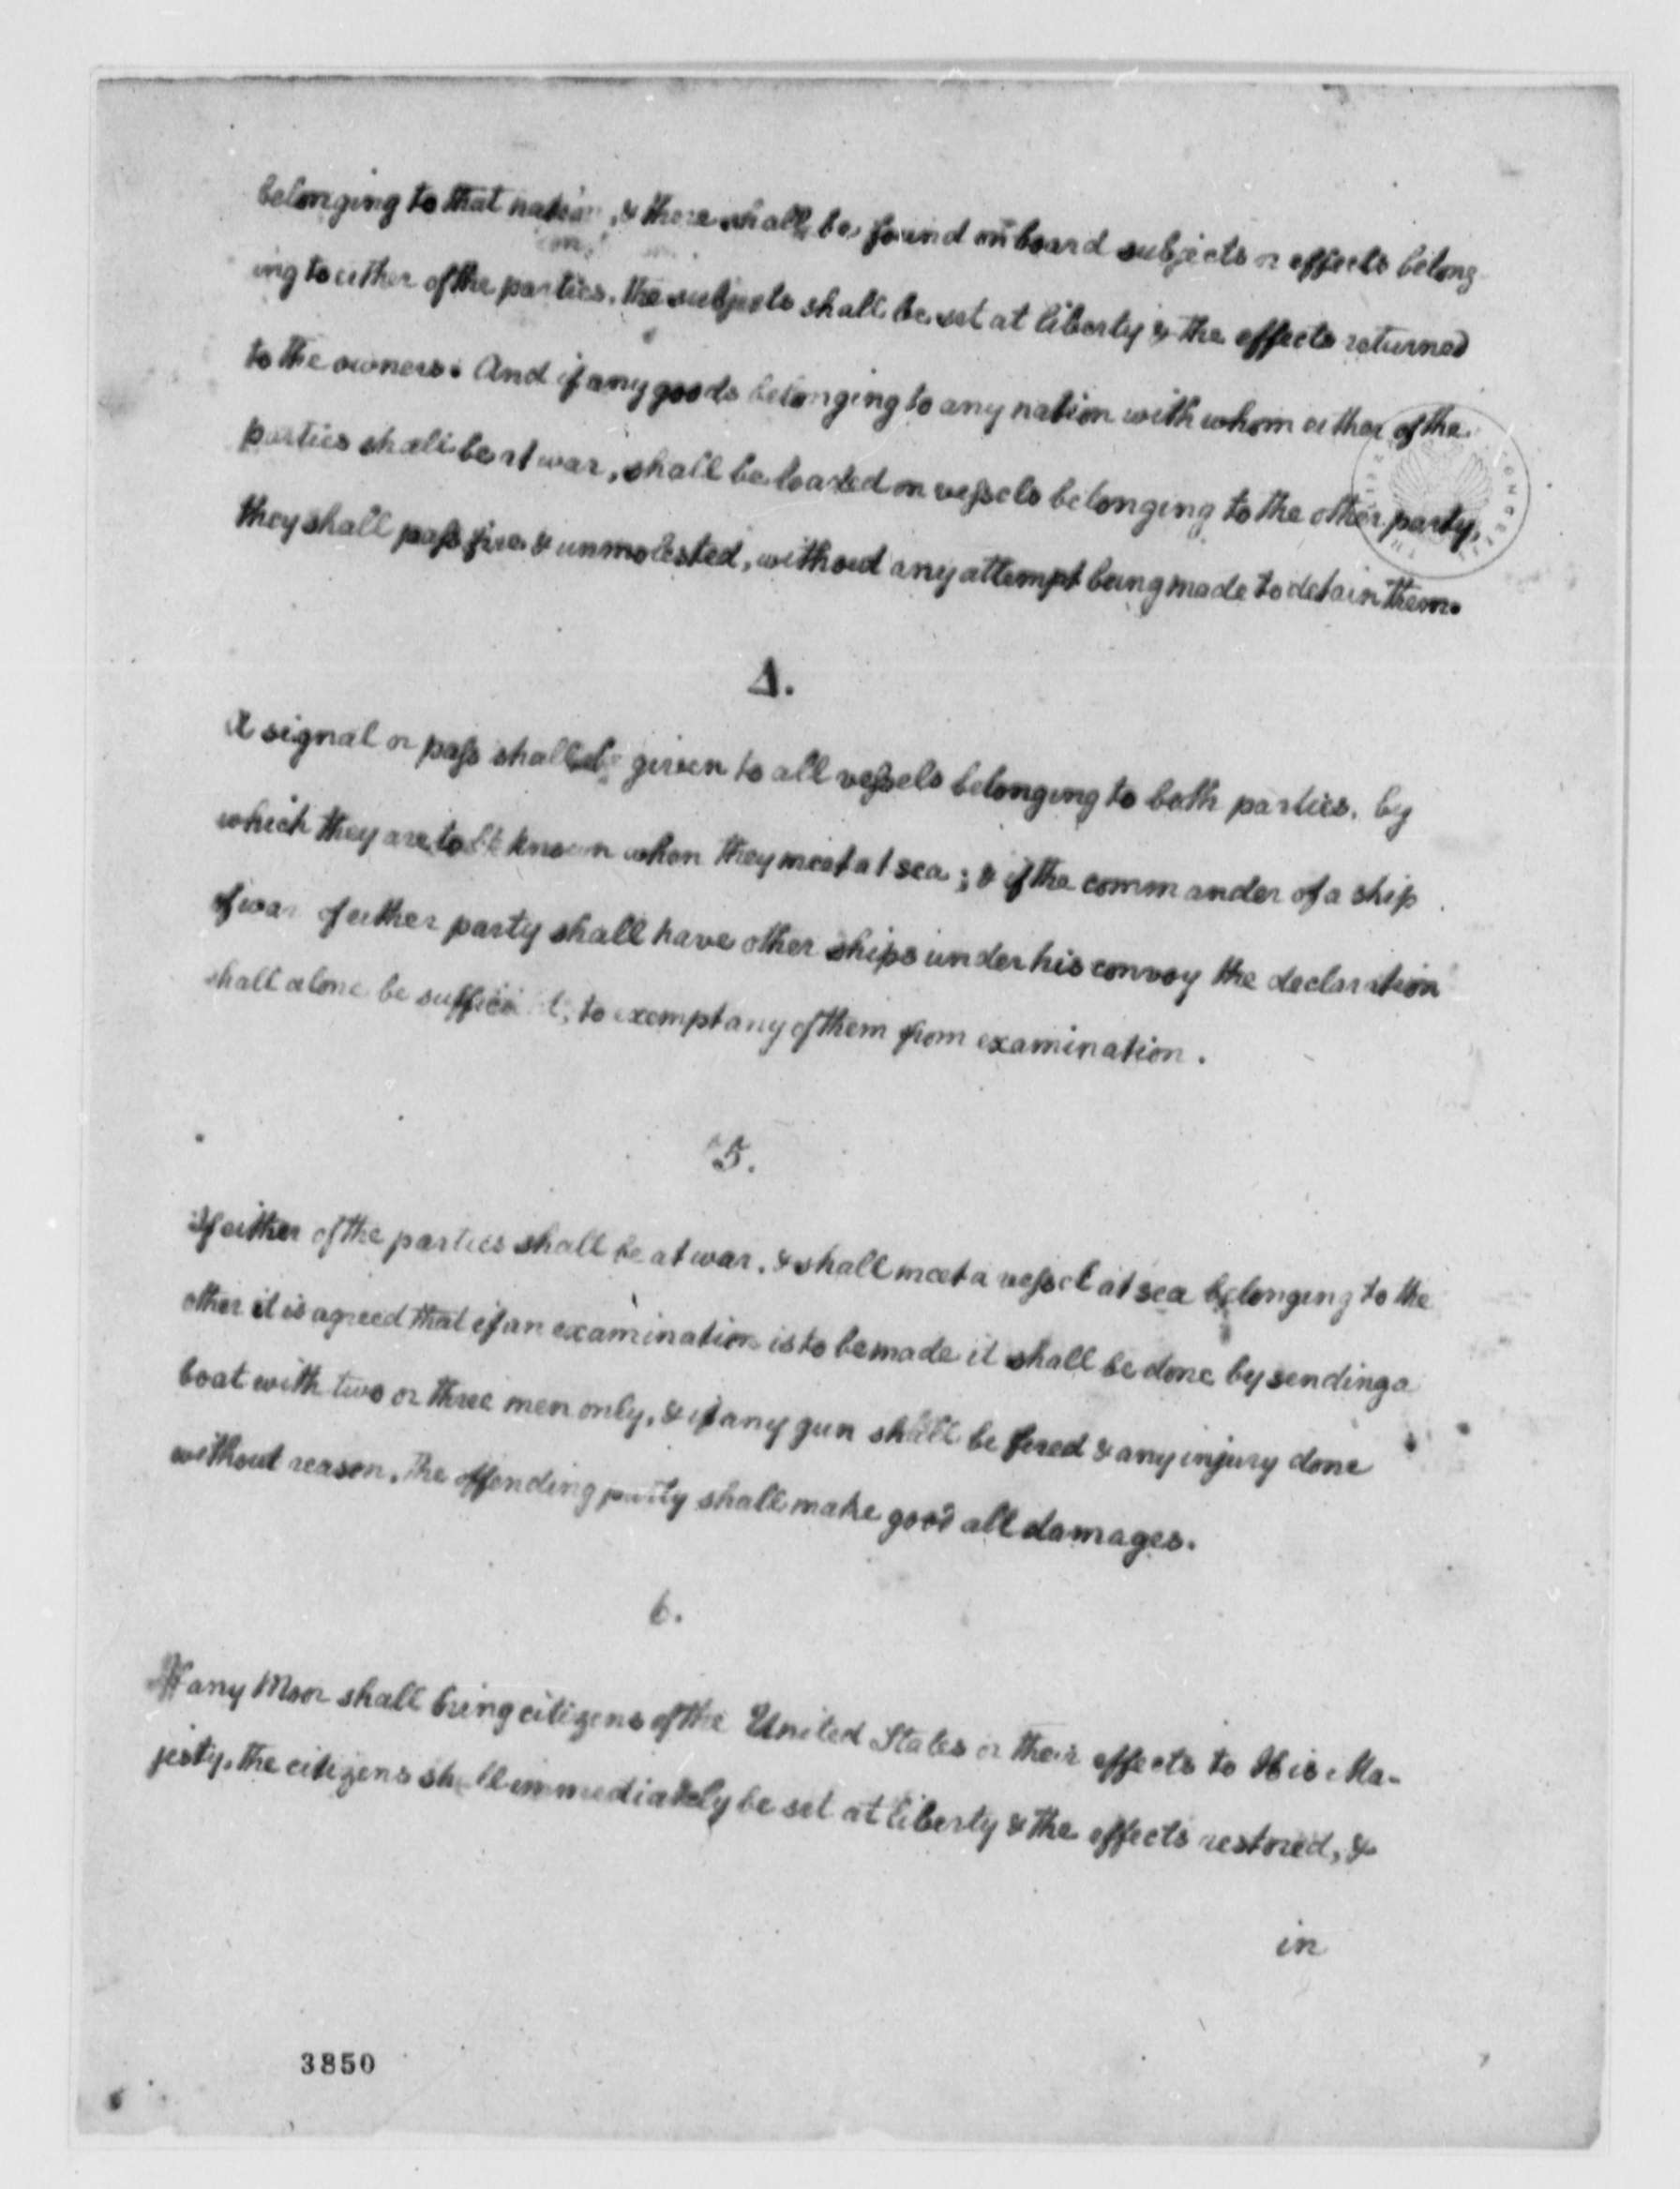 belonging to that nation, & there shall be found on board subjects or effects belong
ing to either of the parties, the subjects shall be set at liberty & the effects returned
to the owners. And if any goods belonging to any nation with whom either of the
parties shall be at war, shall be loaded on vessels belonging to the other party,
they shall pass free & unmolested, without any attempt being made to detain them.
4.
A signal or pass shall be given to all vessels belonging to both parties, by
which they are to be known when they meet at sea; & if the commander of a ship
of war of either party shall have other ships under his convoy the declaration
shall alone be sufficient, to exempt any of them from examination.
5.
If either of the parties shall be at war, & shall meet a vessel at sea belonging to the
other it is agreed that if an examination is to be made it shall be done by sending a
boat with two or three men only, & if any gun shall be fired & any injury done
without reason, the offending party shall make good all damages.
6.
If any Moor shall bring citizens of the United States or their effects to His Ma-
jesty, the citizens shall immediately be set at liberty & the effects restored, &
in
3850